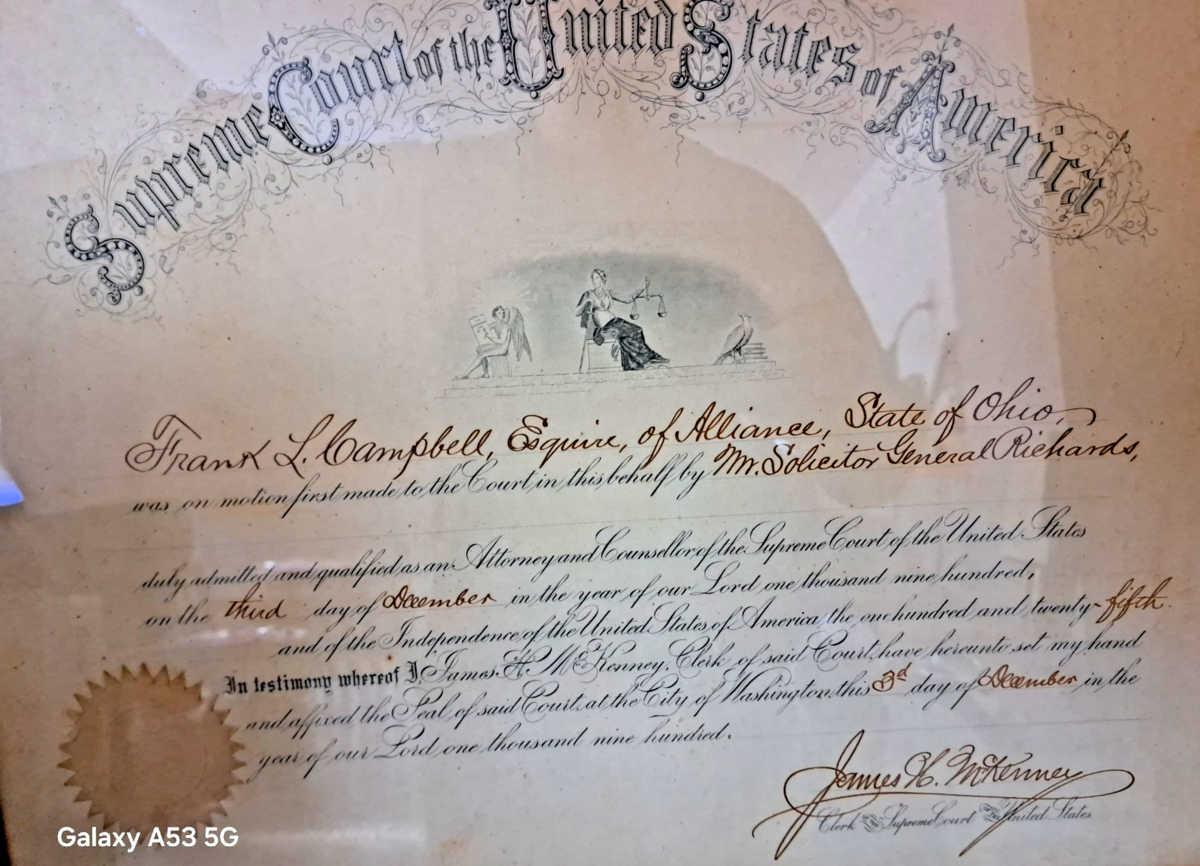 Supreme Court of the United States of America
Frank L. Campbell, Esquire, of Alliance, State of Ohio,
was on motion first made to the Court in this behalf by Mr. Solicitor General Richards,
duly admitted and qualified as an Attorney and Counsellor of the Supreme Court of the United States
on the third day of December in the year of our Lord one thousand nine hundred,
and of the Independence of the United States of America the one hundred and twenty-fifth.
In testimony whereof I, James H. McKenney, Clerk of said Court, have hereunto set my hand
and affixed the Seal of said Court, at the City of Washington, this 3d day of December in the
year of our Lord one thousand nine hundred.
James H. McKenney
Clerk of the Supreme Court of the United States
Galaxy A53 5G